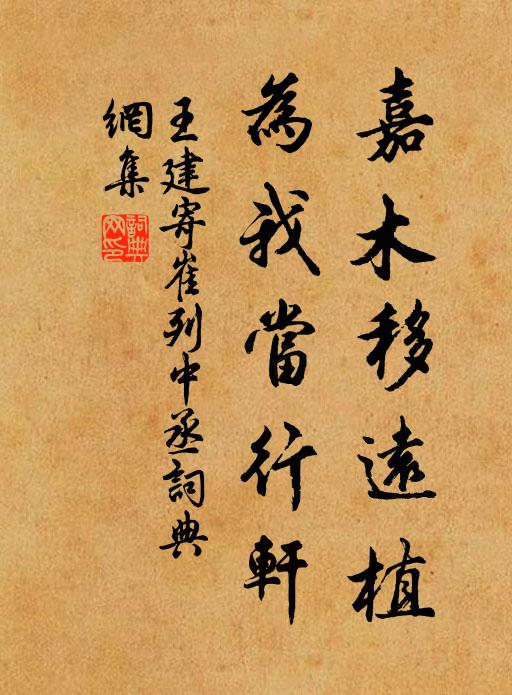 嘉木移遠植
為我當行軒
王建寄崔列中丞詞典
網集
詞典
网印